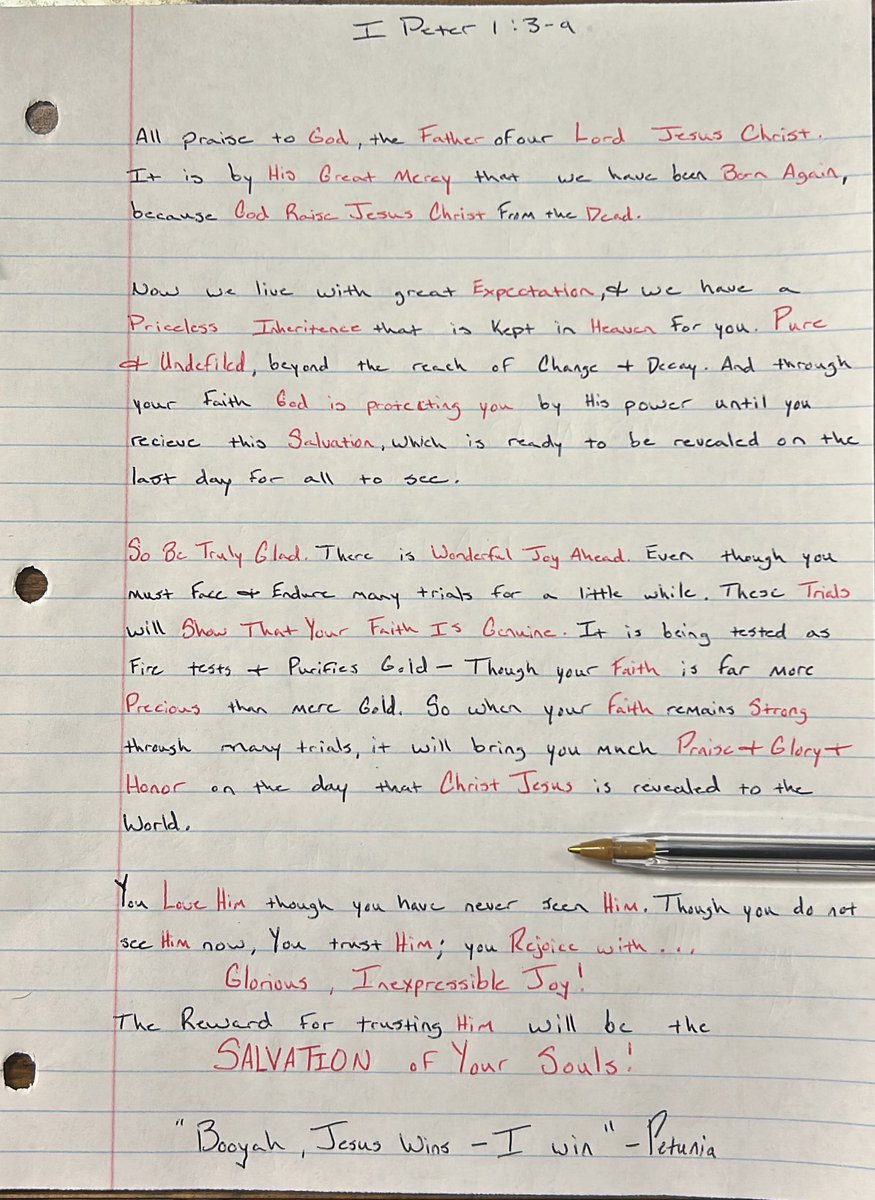 I Peter 1:3-9
All praise to God, the Father of our Lord Jesus Christ.
It is by His Great Mercy that we have been Born Again,
because God Raise Jesus Christ From the Dead.
Now we live with great Expectation, & we have a
Priceless Inheritence that is Kept in Heaven For you. Pure
& Undefiled, beyond the reach of Change + Decay. And through
your Faith God is protecting you by His power until you
recieve this Salvation, which is ready to be revealed on the
last day for all to see.
So Be Truly Glad. There is Wonderful Joy Ahead. Even though you
must Face & Endure many trials for a little while. These Trials
will Show That Your Faith Is Genuine. It is being tested as
Fire tests + Purifies Gold - Though your Faith is far more
Precious than mere Gold. So when your Faith remains Strong
through many trials, it will bring you much Praise + Glory +
Honor on the day that Christ Jesus is revealed to the
World.
You Love Him though you have never seen Him. Though you do not
see Him now, You trust Him; you Rejoice with...
Glorious, Inexpressible Joy!
The Reward For trusting Him will be the
SALVATION of Your Souls!
"Booyah, Jesus Wins - I win" - Petunia